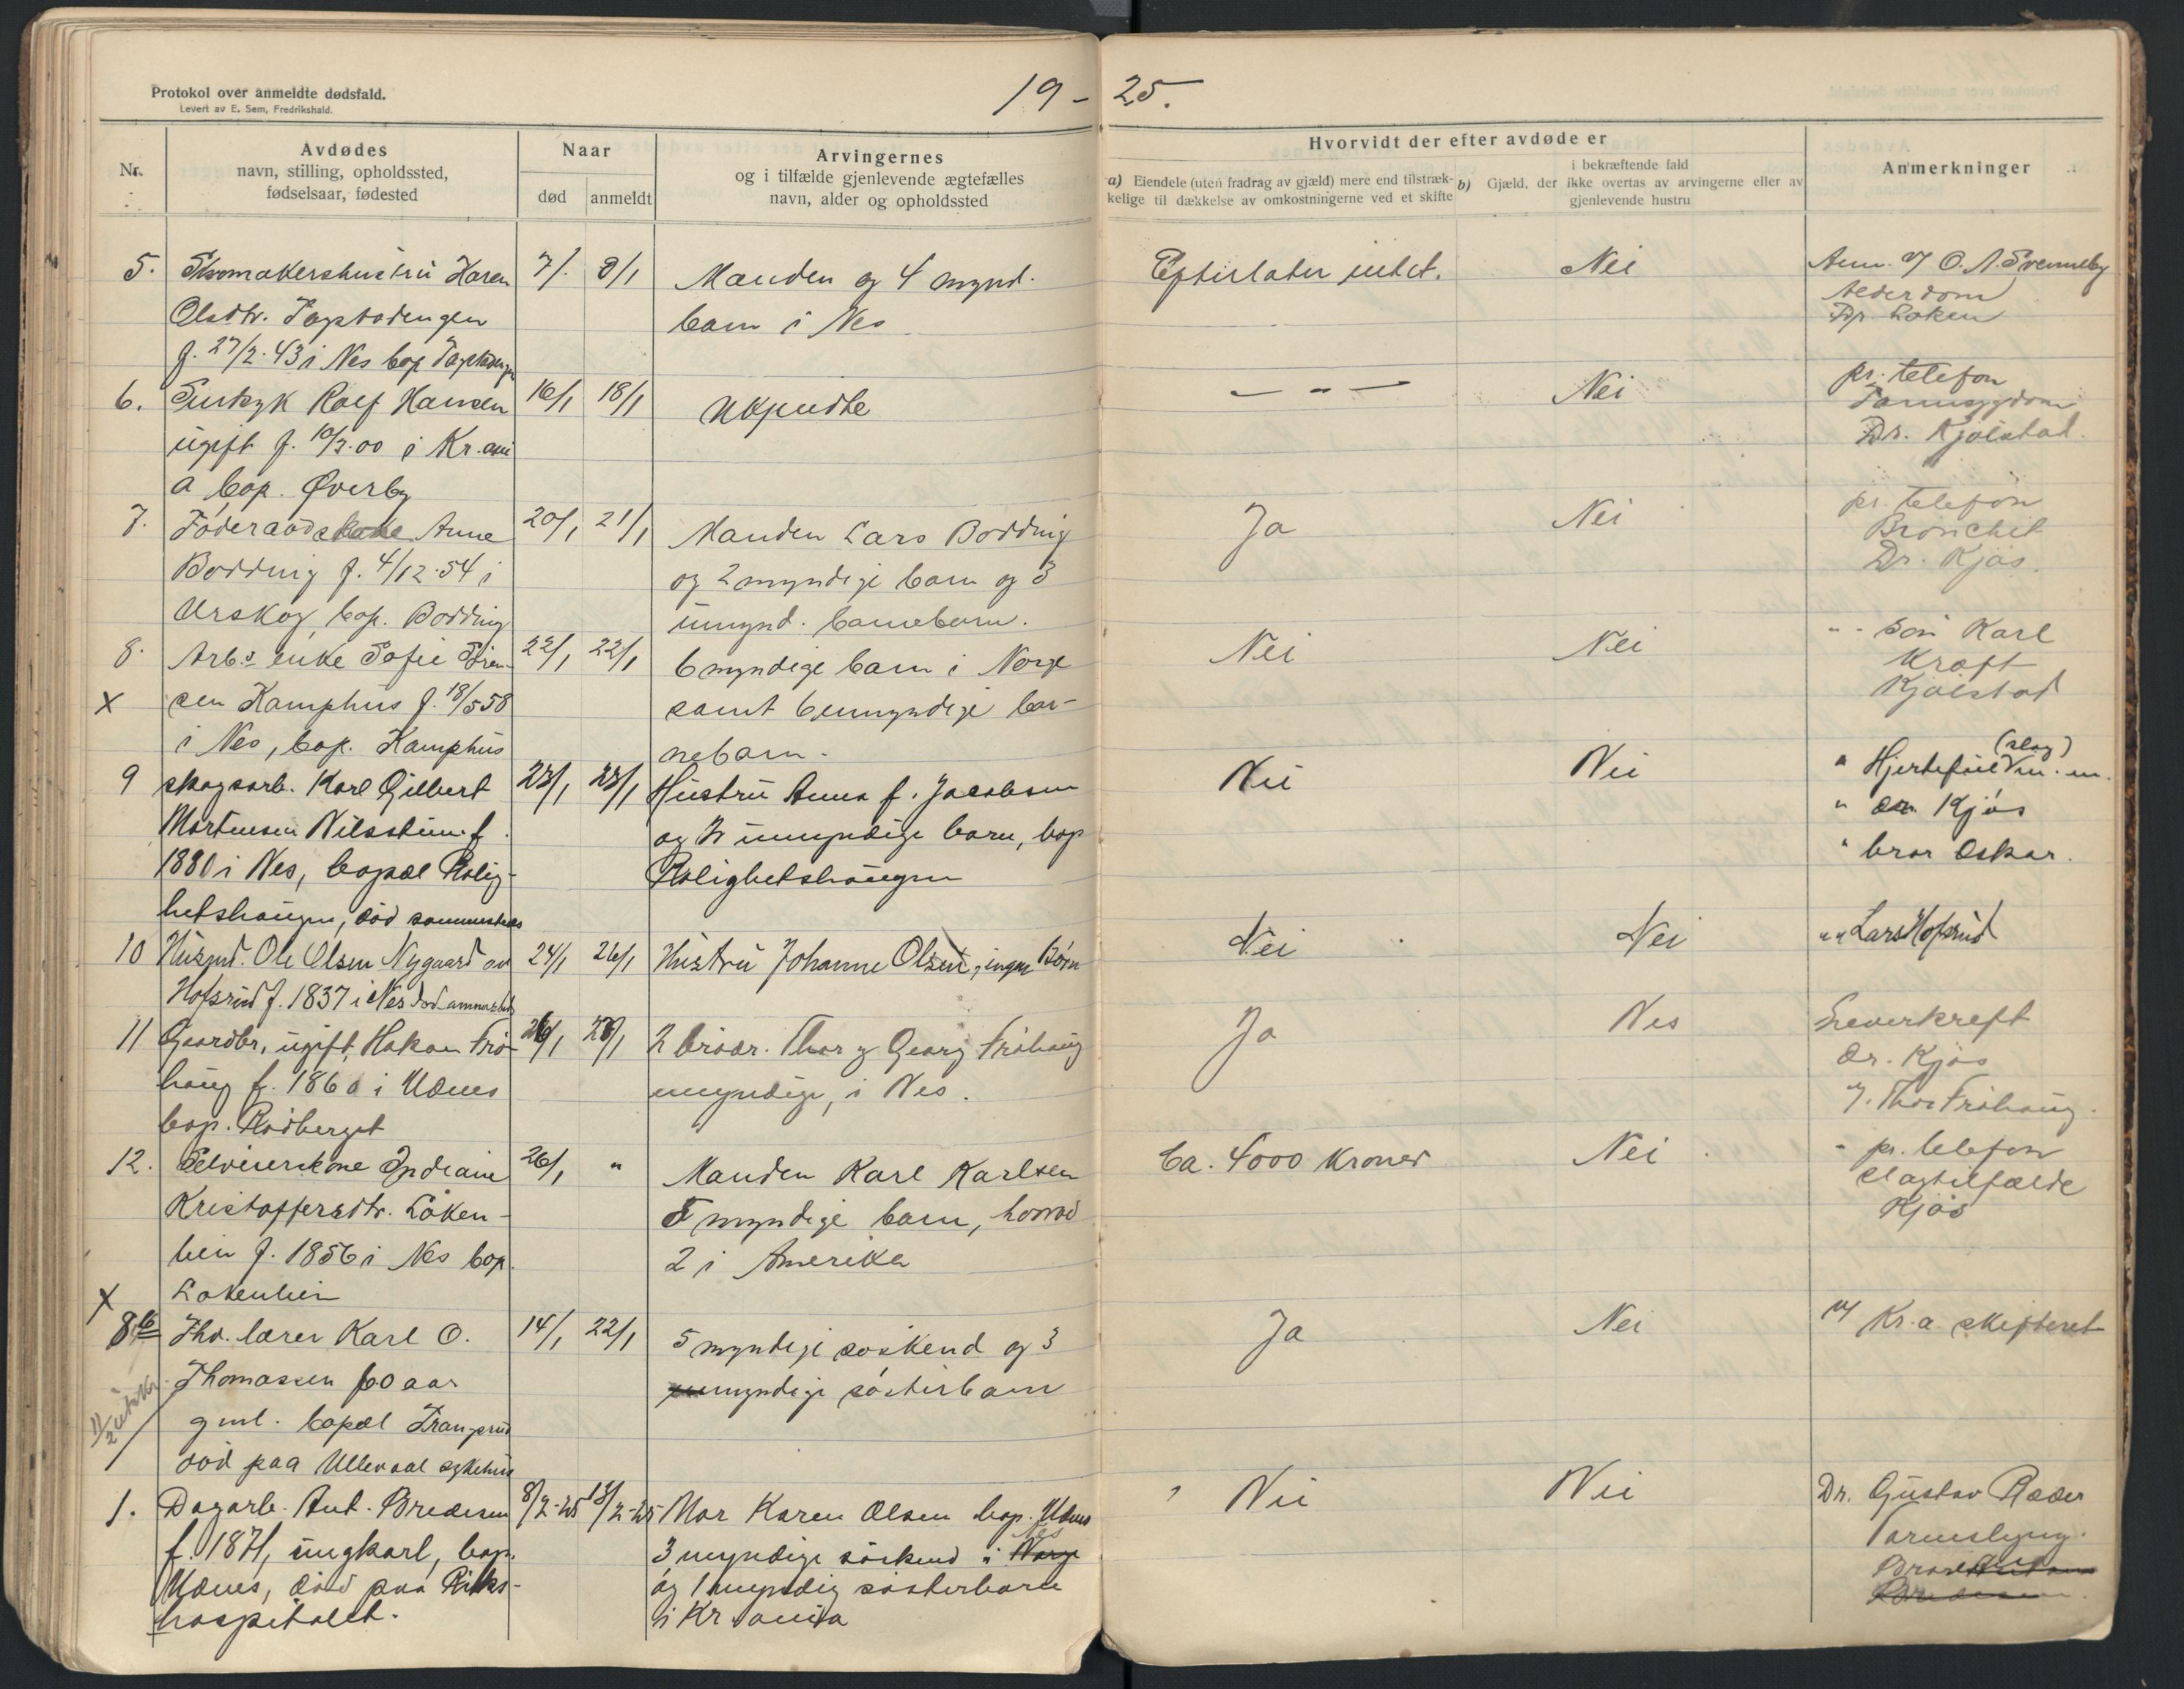 Protokol over anmeldte dødsfald.
Levert av E. Sem, Fredrikshald.
19 - 25.
Nr.
Avdødes
navn, stilling, opholdssted,
fødselsaar, fødested
Naar
død
anmeldt
Arvingernes
og i tilfælde gjenlevende ægtefælles
navn, alder og opholdssted
Hvorvidt der efter avdøde er
a) Eiendele (uten fradrag av gjæld) mere end tilstræk-
kelige til dækkelse av omkostningerne ved et skifte
i bekræftende fald
b) Gjæld, der ikke overtas av arvingerne eller av
gjenlevende hustru
Anmerkninger
5. Skomakershustru Karen 7/1 8/1 Manden og 4 mynd. Efterlater intet. Nei Anm. v/ O. A. Svenneby
Olsdtr. barn i Nes Alderdom
f. 27/2.43 i Nes bop Dr. Løken
6. Rolf Hansen 16/1 18/1 Ukjendte — " — Nei pr. telefon
ugift f. 10/3.00 i Kr.ani Tarmsygdom
a bop. Øverby Dr. Kjølstad.
7. Føderaadskone Anne 20/1 21/1 Manden Lars Bodding Ja Nei pr. telefon
Bodding f. 4/12.54 i og 2 myndige barn og 3 Bronchit
Urskog, bop. Bodding umynd. barnebarn. Dr. Kjøs.
8. Arb.s enke Sofie 22/1 22/1 6 myndige barn i Norge Nei Nei " - søn Karl
x sen Kamphus f. 18/5 58 samt 6 umyndige bar- Kræft
i Nes, bop. Kamphus nebarn. Kjølstad
9 skogsarb. Karl Gilbert 23/1 23/1 Hustru Anna f. Jacobsen Nei Nei " Hjertefeil (slag)
Mortensen f. og umyndige barn, bop " dr. Kjøs
1880 i Nes, bopæl Rolig- Rolighetshaugen " bror Oskar.
hetshaugen, død sammesteds
10 Husmd. Ole Olsen Nygaard av 24/1 26/1 Hustru Johanne Olsen, ingen Børn Nei Nei " " Lars Hofsrud
Hofsrud f. 1837 i Nes død sammesteds
11 Gaardbr, ugift, Hakon Frø- 26/1 2 brødr. Thor og Georg Frøhaug Ja Nei Leverkreft
haug f. 1860 i Udnes myndige, i Nes. Dr. Kjøs
bop. Rødberget v/ Thor Frøhaug.
12. Selveierkone Indiane 26/1 " Manden Karl Karlsen Ca. 4000 kroner Nei - pr. telefon
Kristoffersdtr. Løken- 5 myndige barn, hvorav slagtilfælde
lien f. 1856 i Nes bop. 2 i Amerika Kjøs
Løkenlien
x
8b Fhv. lærer Karl O. 14/1 22/1 5 myndige søskend og 3 Ja Nei v/ Kr.a skifteret
Thomassen 60 aar myndige søsterbarn
gml. bopæl
død paa Ullevaal sykehus
1. Dagarb. Ant. Bredesen 8/2-25 13/2-25 Mor Karen Olsen bop. Udnes Nei Nei Dr. Gustav Ræder
f. 1871, ungkarl, bop. 3 myndige søskend i Norge Nes Tarmslyng.
Udnes, død paa Riks- og 1 myndig søsterbarn
hospitalet. i Kr.ania